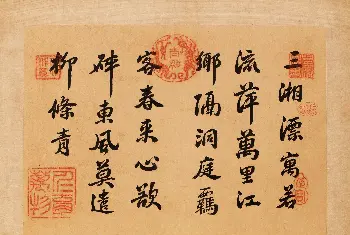 三湘漂寓若
流萍萬里江
鄉隔洞庭羈
客春來心欲
碎東風莫遣
柳條青